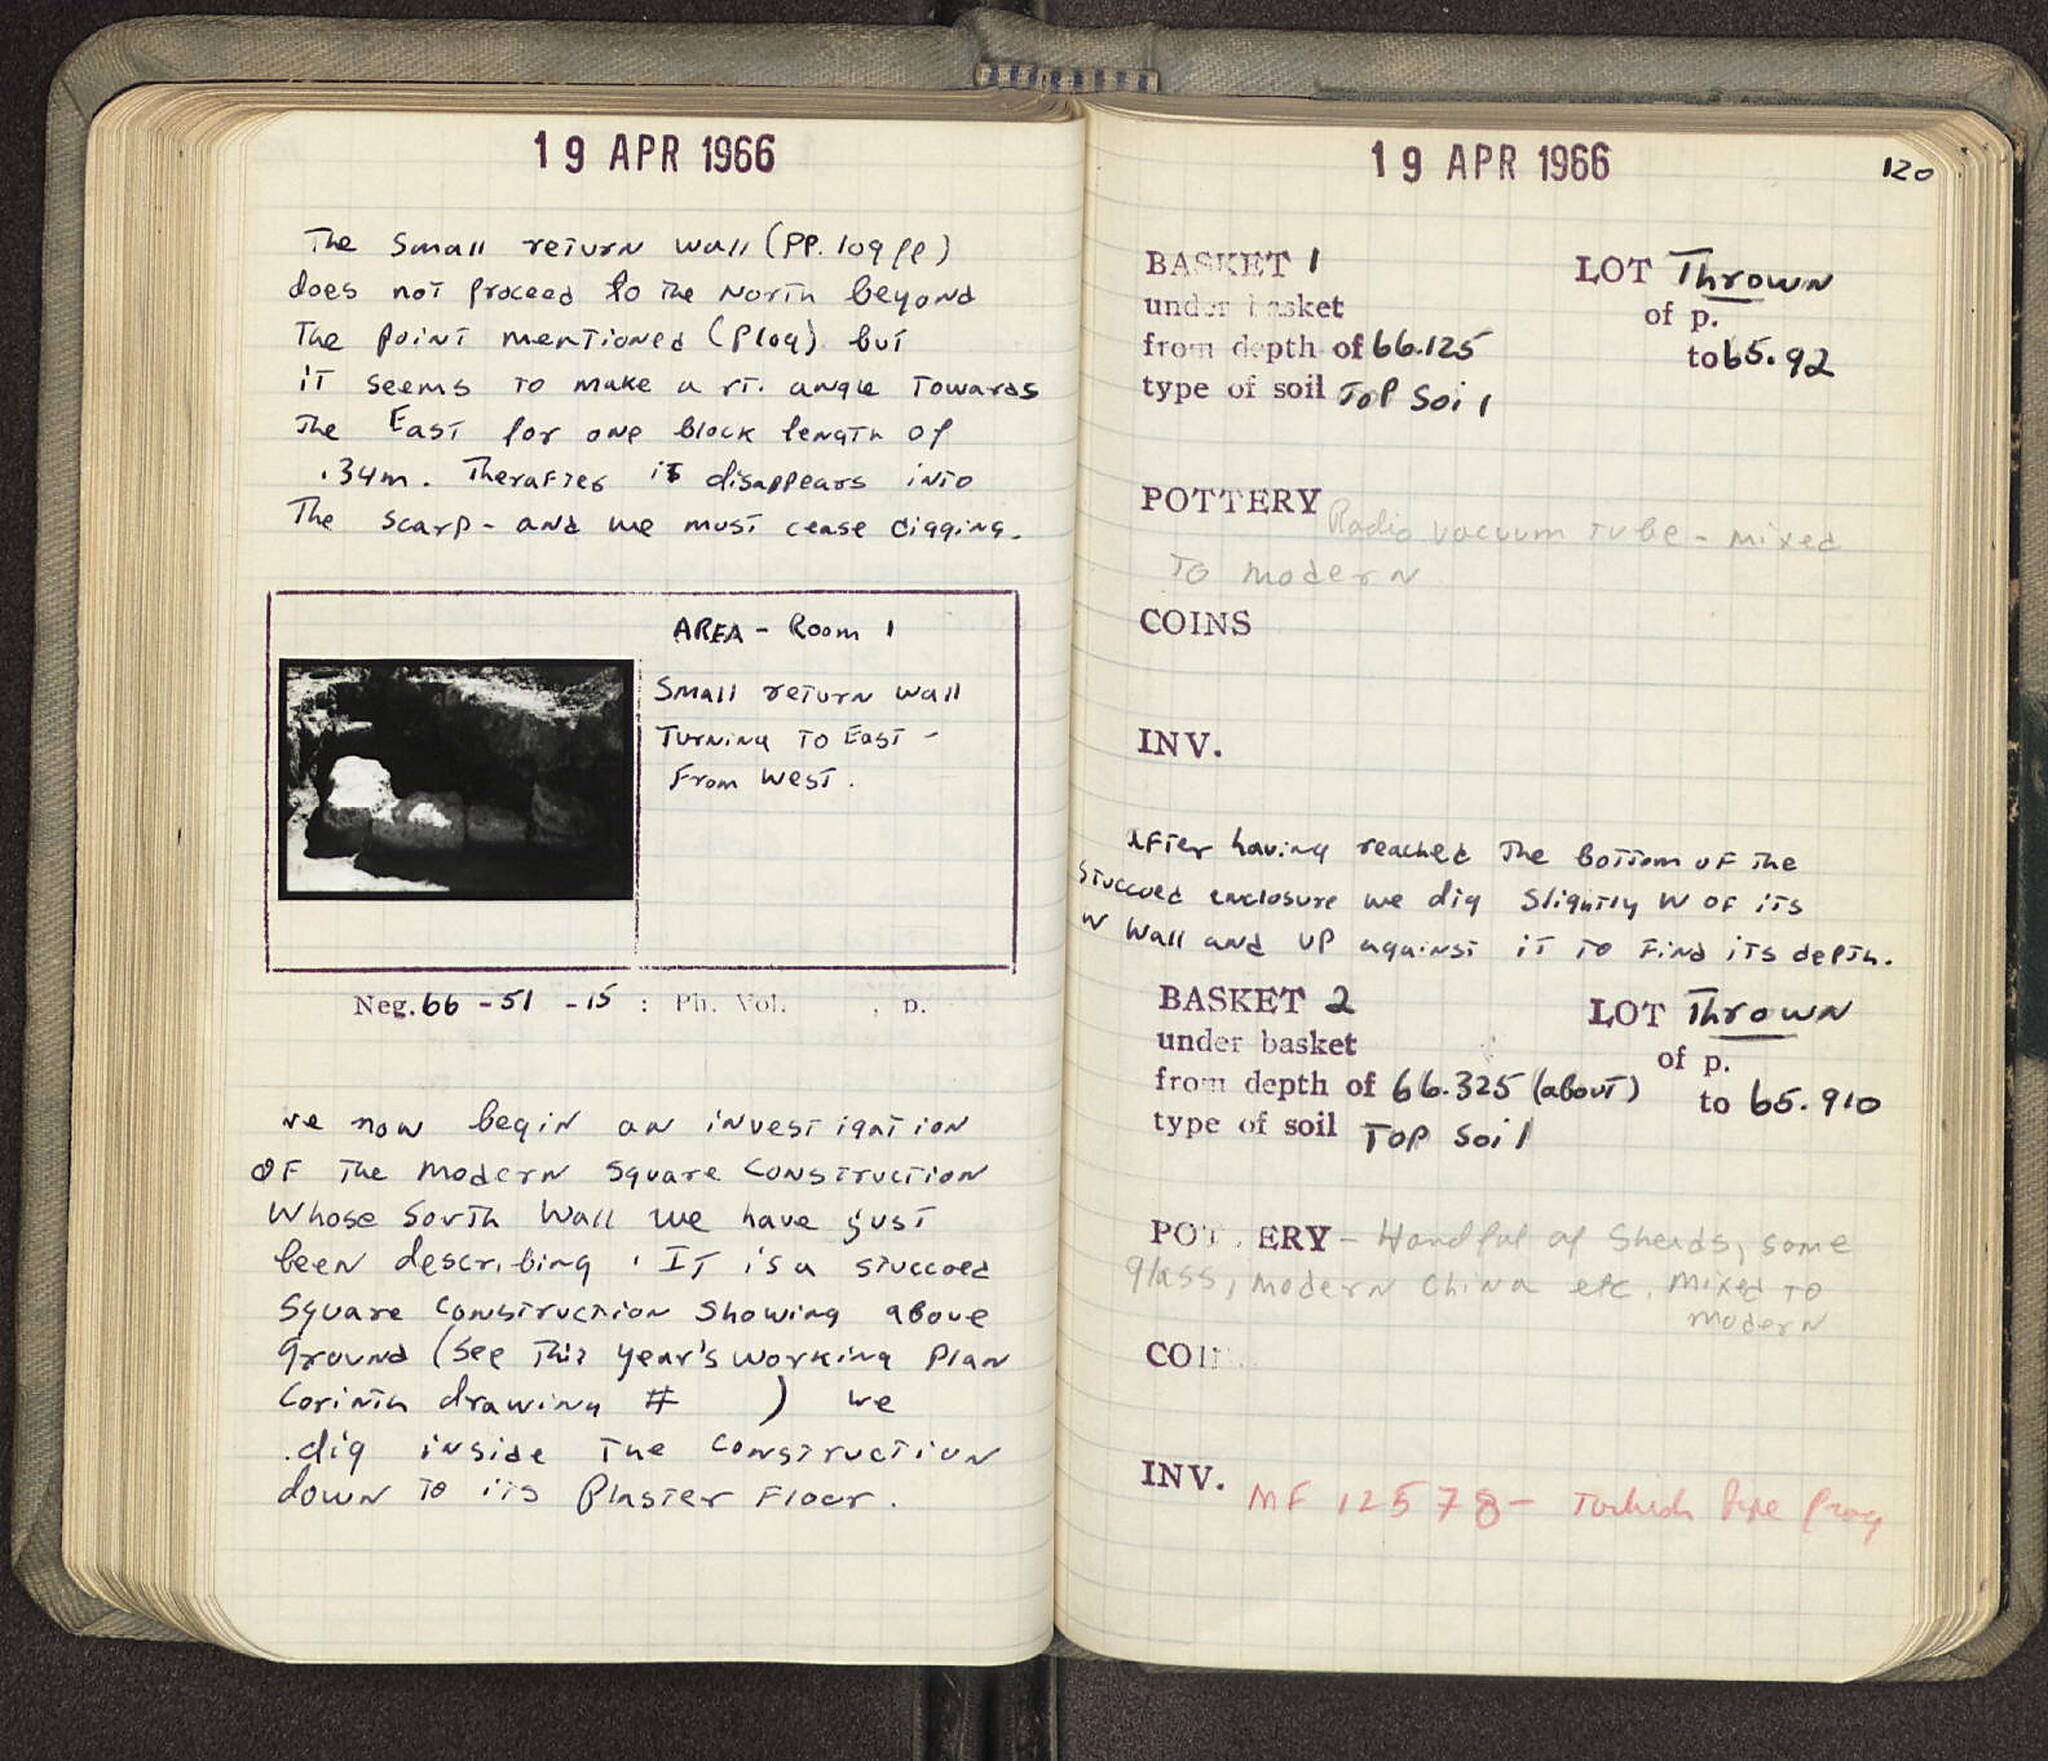 19 APR 1966
The Small return wall (PP. 109 ff)
does not proceed to the North beyond
The point mentioned (P109) but
it seems to make a rt. angle Towards
The East for one block length of
.34m. Therafter it disappears into
The scarp - and we must cease digging.
AREA - Room 1
Small return wall
Turning to East -
From West.
Neg. 66 - 51 - 15 : Ph. Vol. , p.
We now begin an investigation
OF The Modern Square Construction
Whose South Wall we have just
been describing. It is a stuccoed
Square Construction Showing above
Ground (See This Year's working Plan
Corinth drawing # ) we
dig inside The Construction
down to its Plaster Floor.
19 APR 1966
120
BASKET 1 LOT Thrown
under basket of p.
from depth of 66.125 to 65.92
type of soil Top Soil
POTTERY Radio vacuum tube - mixed
To modern
COINS
INV.
After having reached The bottom of The
Stuccoed enclosure we dig Slightly W of its
W Wall and up against it to Find its depth.
BASKET 2 LOT Thrown
under basket of p.
from depth of 66.325 (about) to 65.910
type of soil Top Soil
POT ERY - Handful of Sherds, some
glass, modern China etc. Mixed to
modern
COI
INV. MF 12578 - Turkish Pipe frag